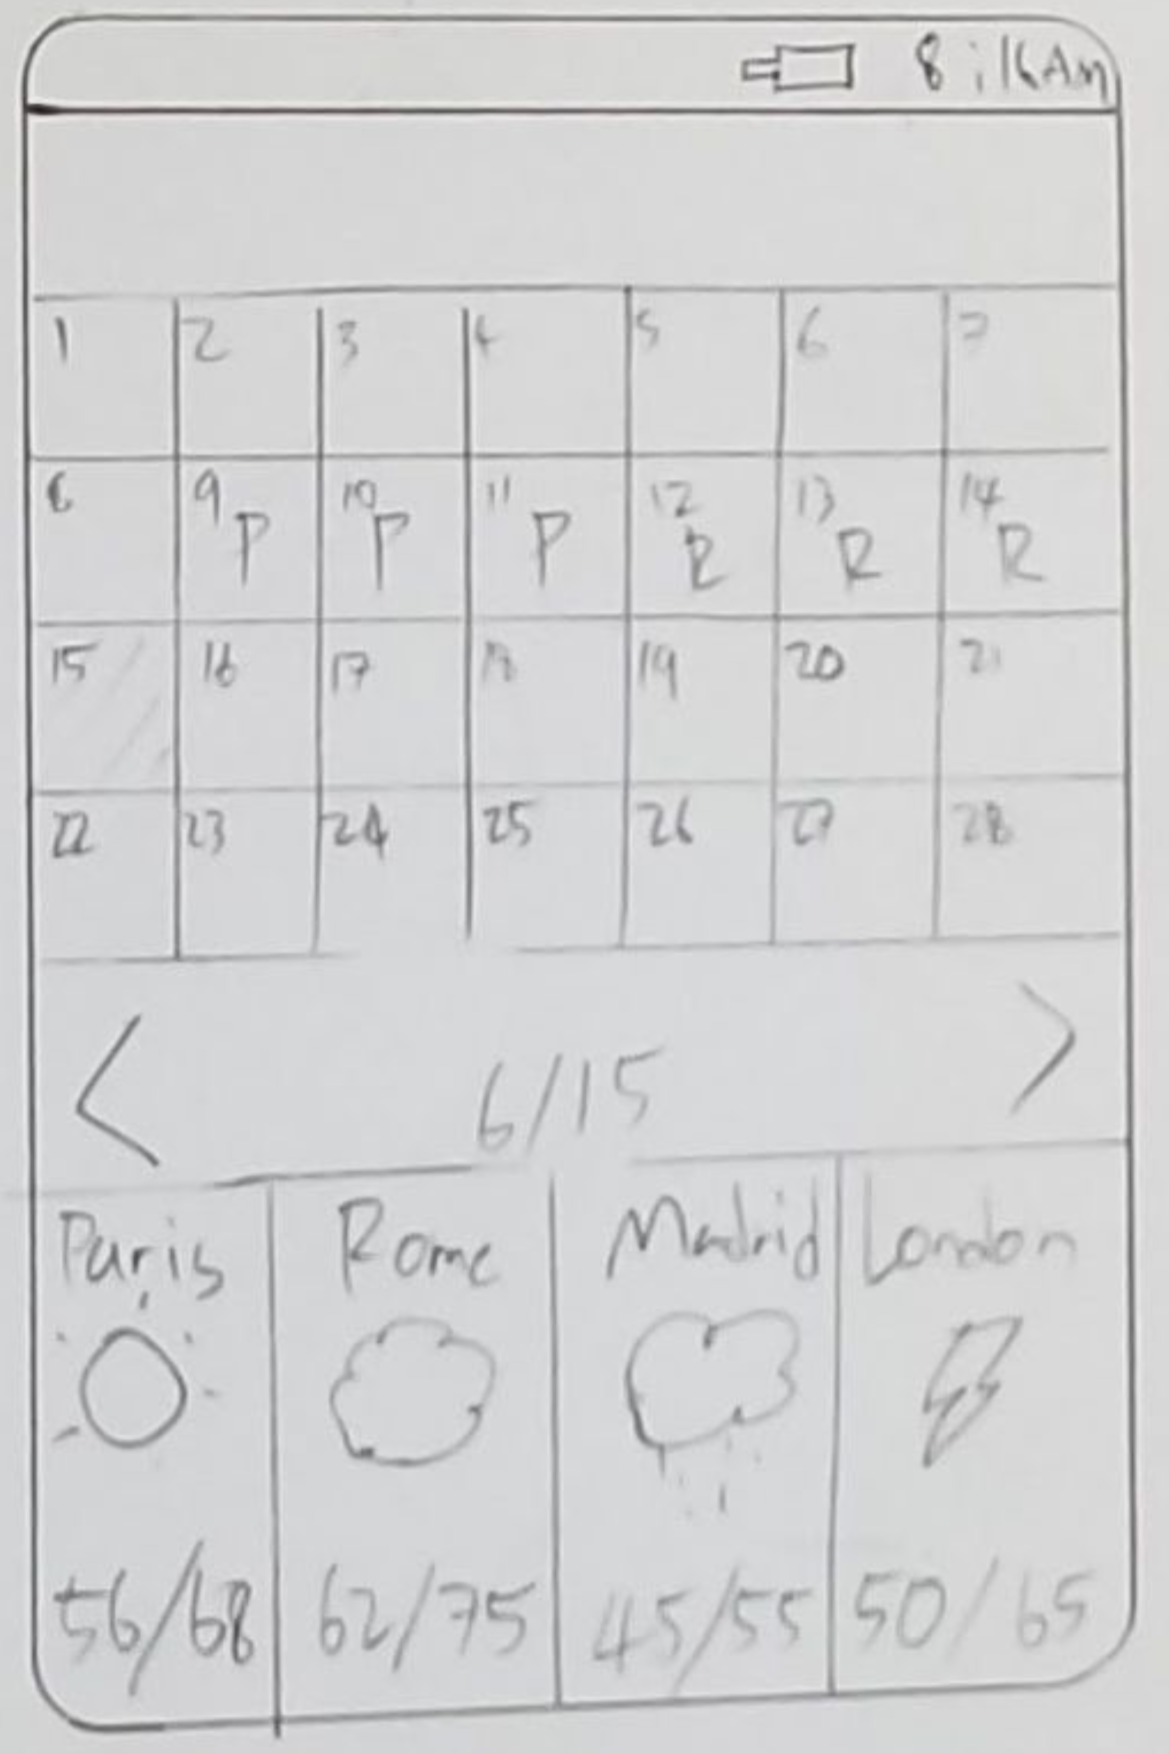 8:16AM
1 2 3 4 5 6 7
8 9 P 10 P 11 P 12 R 13 R 14 R
15 16 17 18 19 20 21
22 23 24 25 26 27 28
< 6/15 >
Paris Rome Madrid London
56/68 62/75 45/55 50/65